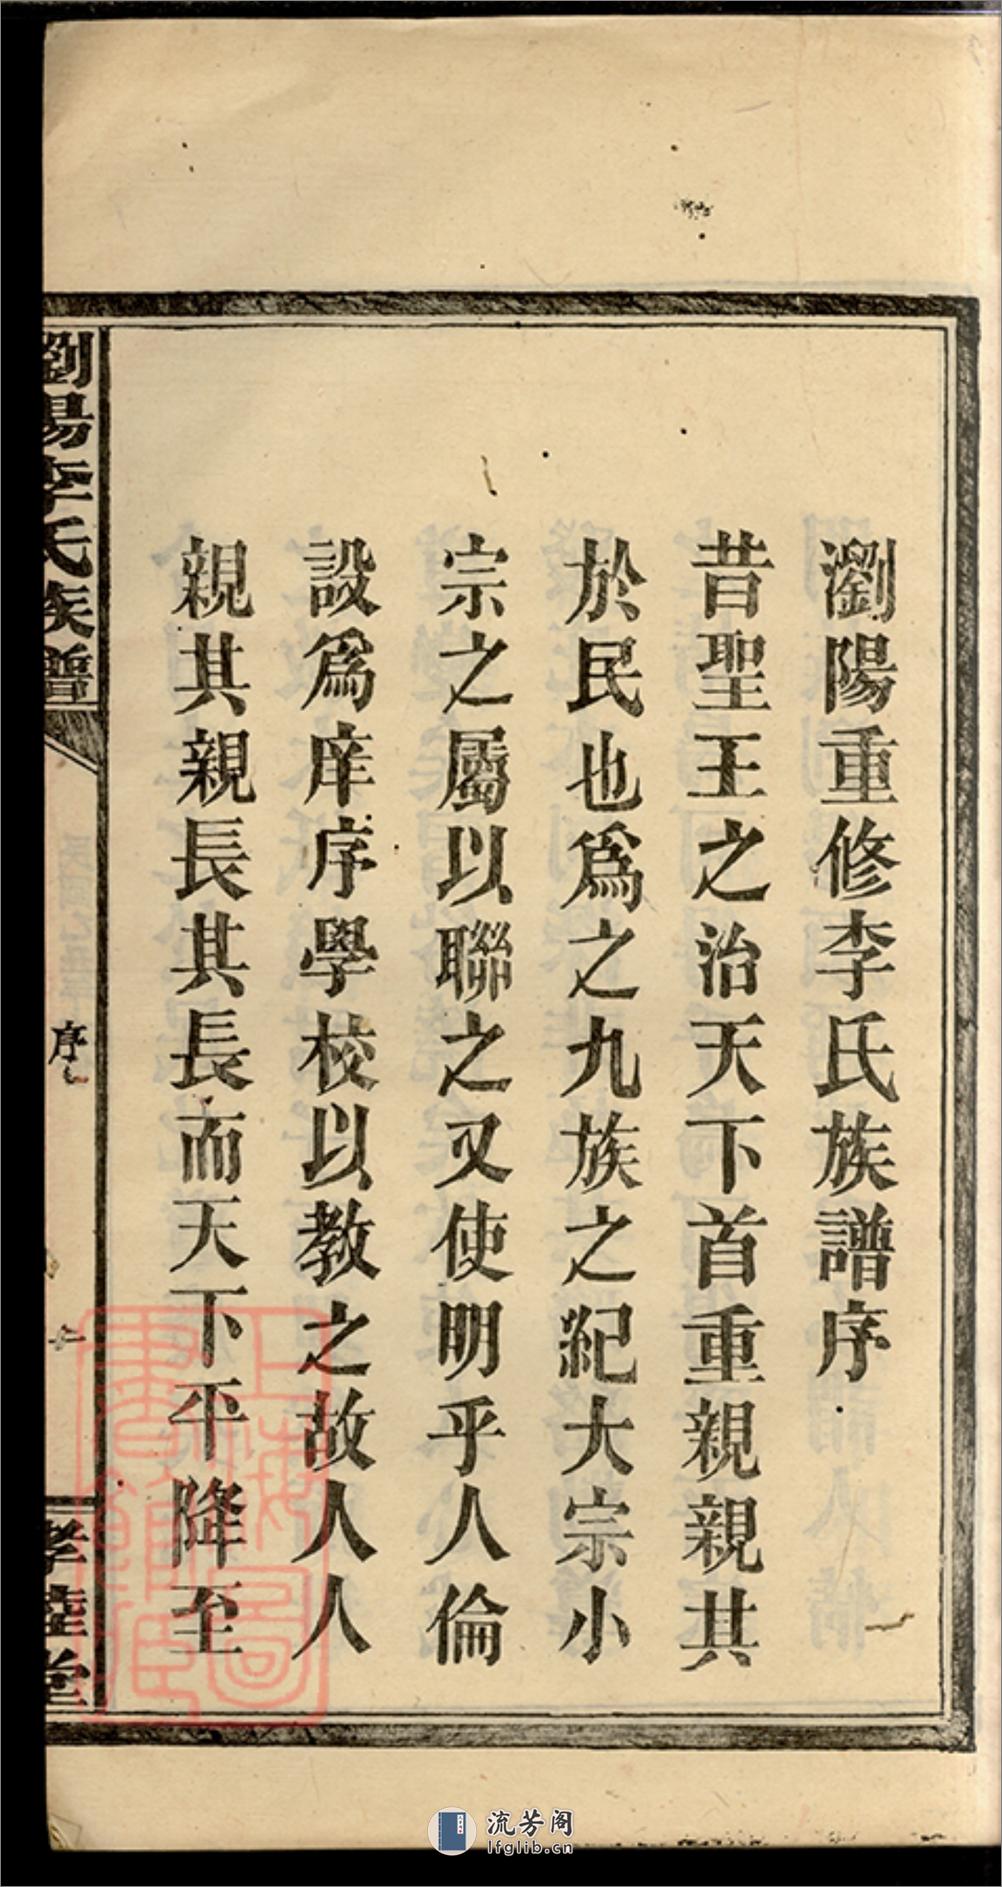 瀏陽重修李氏族譜序
昔聖王之治天下首重親親其
於民也爲之九族之紀大宗小
宗之屬以聯之又使明乎人倫
設爲庠序學校以教之故人人
親其親長其長而天下平降至
瀏陽李氏族譜
序
孝睦堂
上海圖書館藏
流芳阁
lfglib.cn